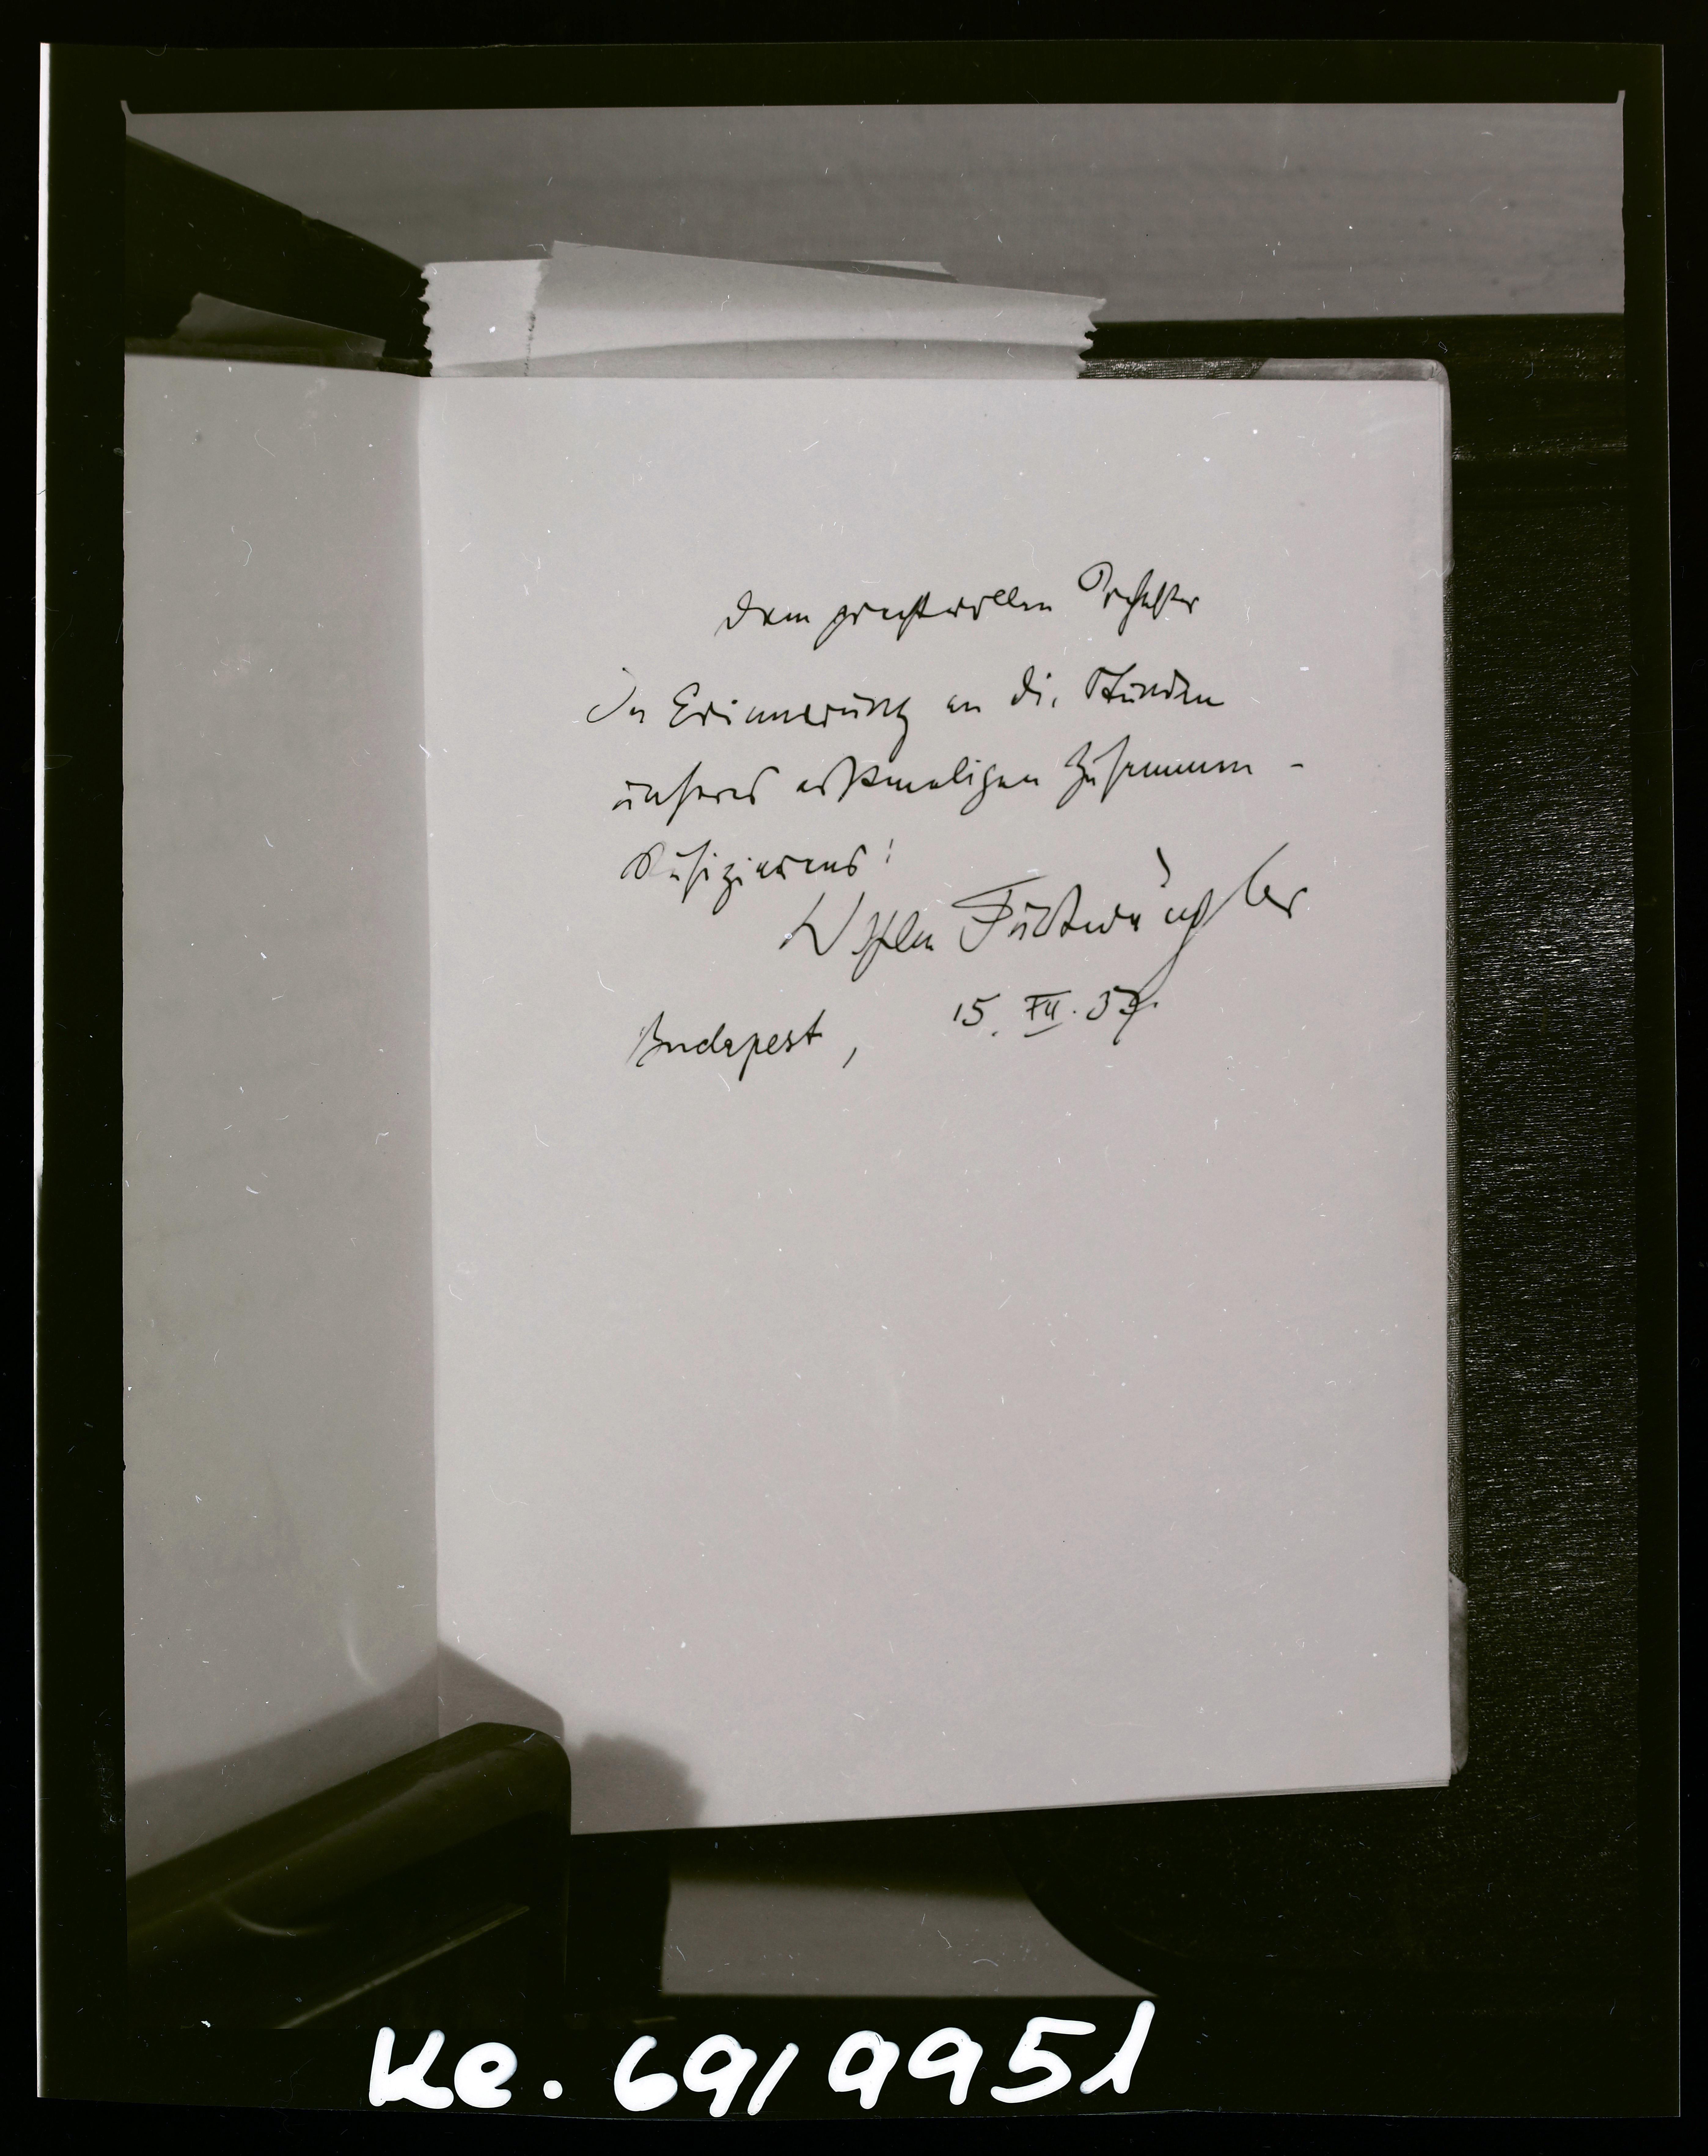 Dem prachtvollen Orchester
In Erinnerung an die Stunden
unseres erstmaligen Zusammen-
Musizierens!
Wilhelm Furtwängler
Budapest, 15. XII. 37.
Ke. 69/9951